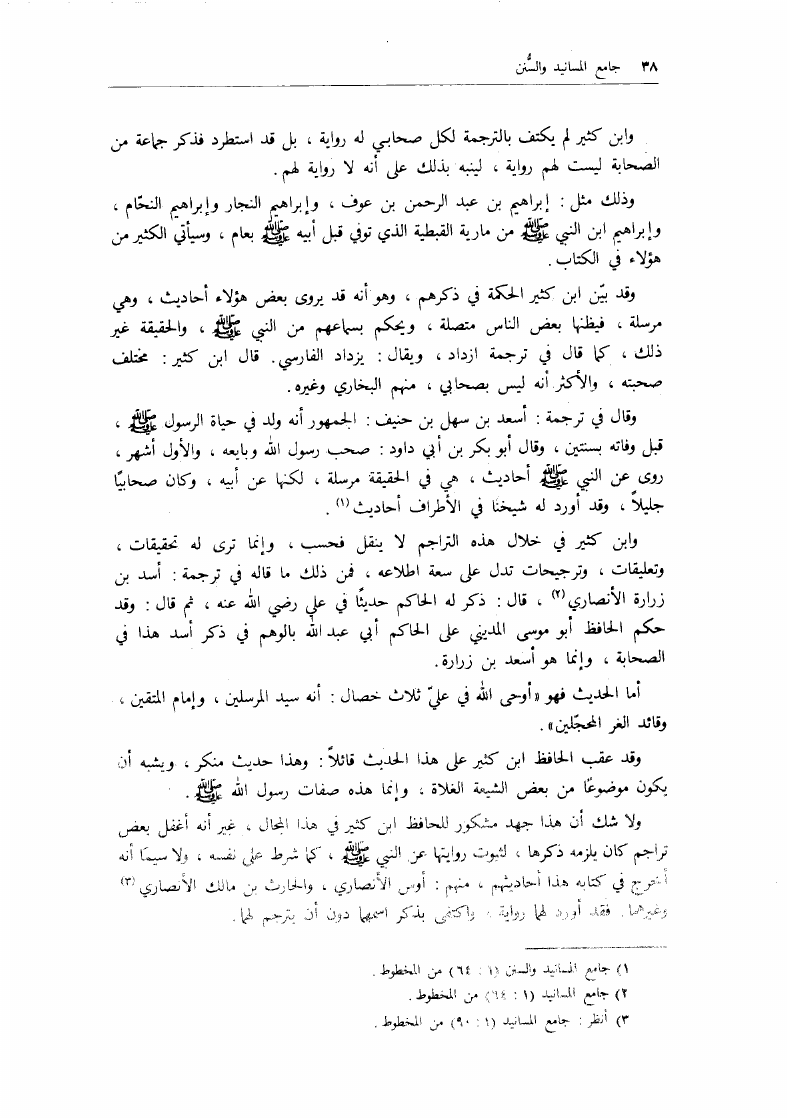 ٣٨ جامع المسانيد والسُّنن
وابن كثير لم يكتف بالترجمة لكل صحابي له رواية ، بل قد استطرد فذكر جماعة من
الصحابة ليست لهم رواية ، لينبه بذلك على أنه لا رواية لهم .
وذلك مثل : إبراهيم بن عبد الرحمن بن عوف ، وإبراهيم النجار وإبراهيم النحّام ،
وإبراهيم ابن النبي ﷺ من مارية القبطية الذي توفي قبل أبيه ﷺ بعام ، وسيأتي الكثير من
هؤلاء في الكتاب .
وقد بيّن ابن كثير الحكمة في ذكرهم ، وهو أنه قد يروى بعض هؤلاء أحاديث ، وهي
مرسلة ، فيظنها بعض الناس متصلة ، ويحكم بسماعهم من النبي ﷺ ، والحقيقة غير
ذلك ، كما قال في ترجمة ازداد ، ويقال : يزداد الفارسي . قال ابن كثير : مختلف
صحبته ، والأكثر أنه ليس بصحابي ، منهم البخاري وغيره .
وقال في ترجمة : أسعد بن سهل بن حنيف : الجمهور أنه ولد في حياة الرسول ﷺ ،
قبل وفاته بسنتين ، وقال أبو بكر بن أبي داود : صحب رسول الله وبايعه ، والأول أشهر ،
روى عن النبي ﷺ أحاديث ، هي في الحقيقة مرسلة ، لكنها عن أبيه ، وكان صحابيًا
جليلاً ، وقد أورد له شيخنا في الأطراف أحاديث (١) .
وابن كثير في خلال هذه التراجم لا ينقل فحسب ، وإنما ترى له تحقيقات ،
وتعليقات ، وترجيحات تدل على سعة اطلاعه ، فمن ذلك ما قاله في ترجمة : أسد بن
زرارة الأنصاري (٢) ، قال : ذكر له الحاكم حديثًا في علي رضي الله عنه ، ثم قال : وقد
حكم الحافظ أبو موسى المديني على الحاكم أبي عبد الله بالوهم في ذكر أسد هذا في
الصحابة ، وإنما هو أسعد بن زرارة .
أما الحديث فهو «أوحى الله في عليّ ثلاث خصال : أنه سيد المرسلين ، وإمام المتقين ،
وقائد الغر المحجّلين» .
وقد عقب الحافظ ابن كثير على هذا الحديث قائلاً : وهذا حديث منكر ، ويشبه أن
يكون موضوعًا من بعض الشيعة الغلاة ، وإنما هذه صفات رسول الله ﷺ .
ولا شك أن هذا جهد مشكور للحافظ ابن كثير في هذا المجال ، غير أنه أغفل بعض
تراجم كان يلزمه ذكرها ، لثبوت روايتها عن النبي ﷺ ، كما شرط على نفسه ، ولا سيما أنه
أخرج في كتابه هذا أحاديثهم ، منهم : أوس الأنصاري ، والحارث بن مالك الأنصاري (٣)
وغيرهما . فقد أورد لهما رواية ، واكتفى بذكر اسمهما دون أن يترجم لهما .
١) جامع المسانيد والسنن (١ : ٦٤) من المخطوط .
٢) جامع المسانيد (١ : ٦٤) من المخطوط .
٣) أنظر : جامع المسانيد (١ : ٩٠) من المخطوط .